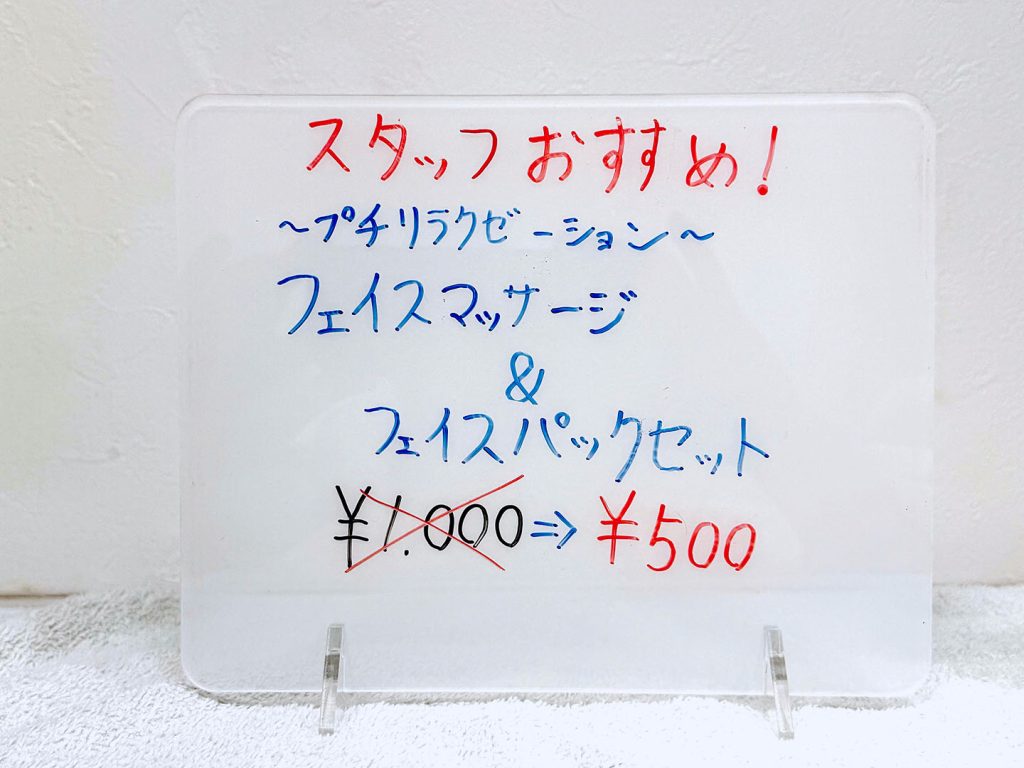 スタッフおすすめ!
~プチリラクゼーション~
フェイスマッサージ
&
フェイスパックセット
¥1.000⇒¥500